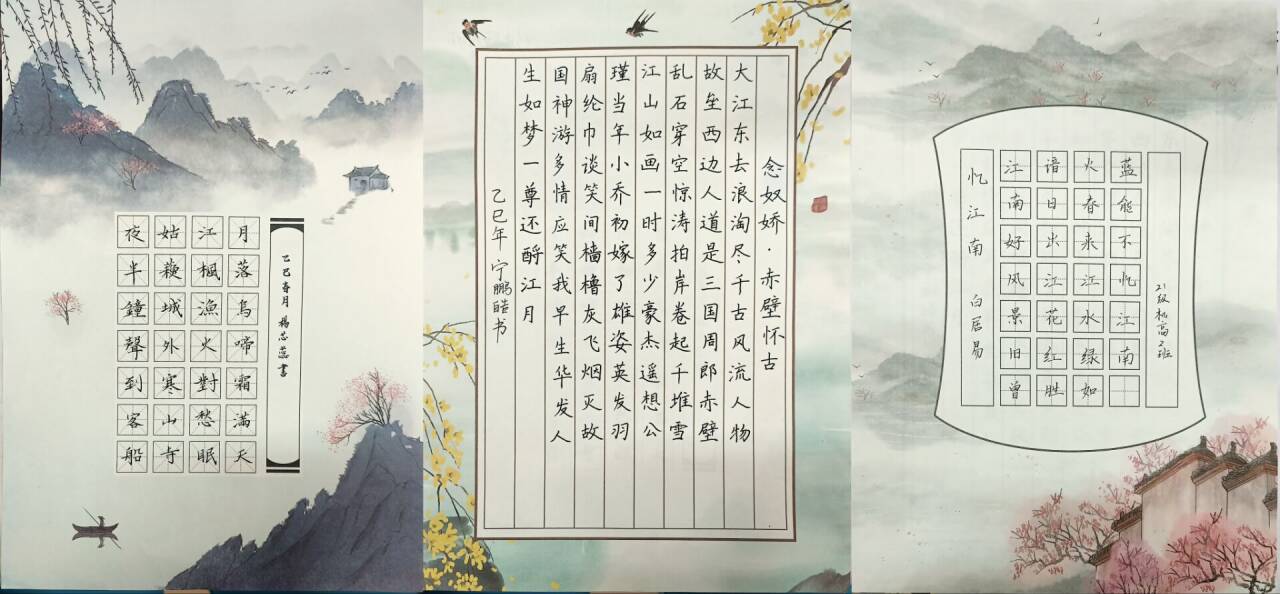 月落烏啼霜滿天
江楓漁火對愁眠
姑蘓城外寒山寺
夜半鐘聲到客船
乙巳春月 楊芯蕊書
念奴娇·赤壁怀古
大江东去浪淘尽千古风流人物
故垒西边人道是三国周郎赤壁
乱石穿空惊涛拍岸卷起千堆雪
江山如画一时多少豪杰遥想公
瑾当年小乔初嫁了雄姿英发羽
扇纶巾谈笑间樯橹灰飞烟灭故
国神游多情应笑我早生华发人
生如梦一尊还酹江月
乙巳年 宁鹏皓书
忆江南 白居易
江南好风景旧曾
谙日出江花红胜
火春来江水绿如
蓝能不忆江南
21级机高2班